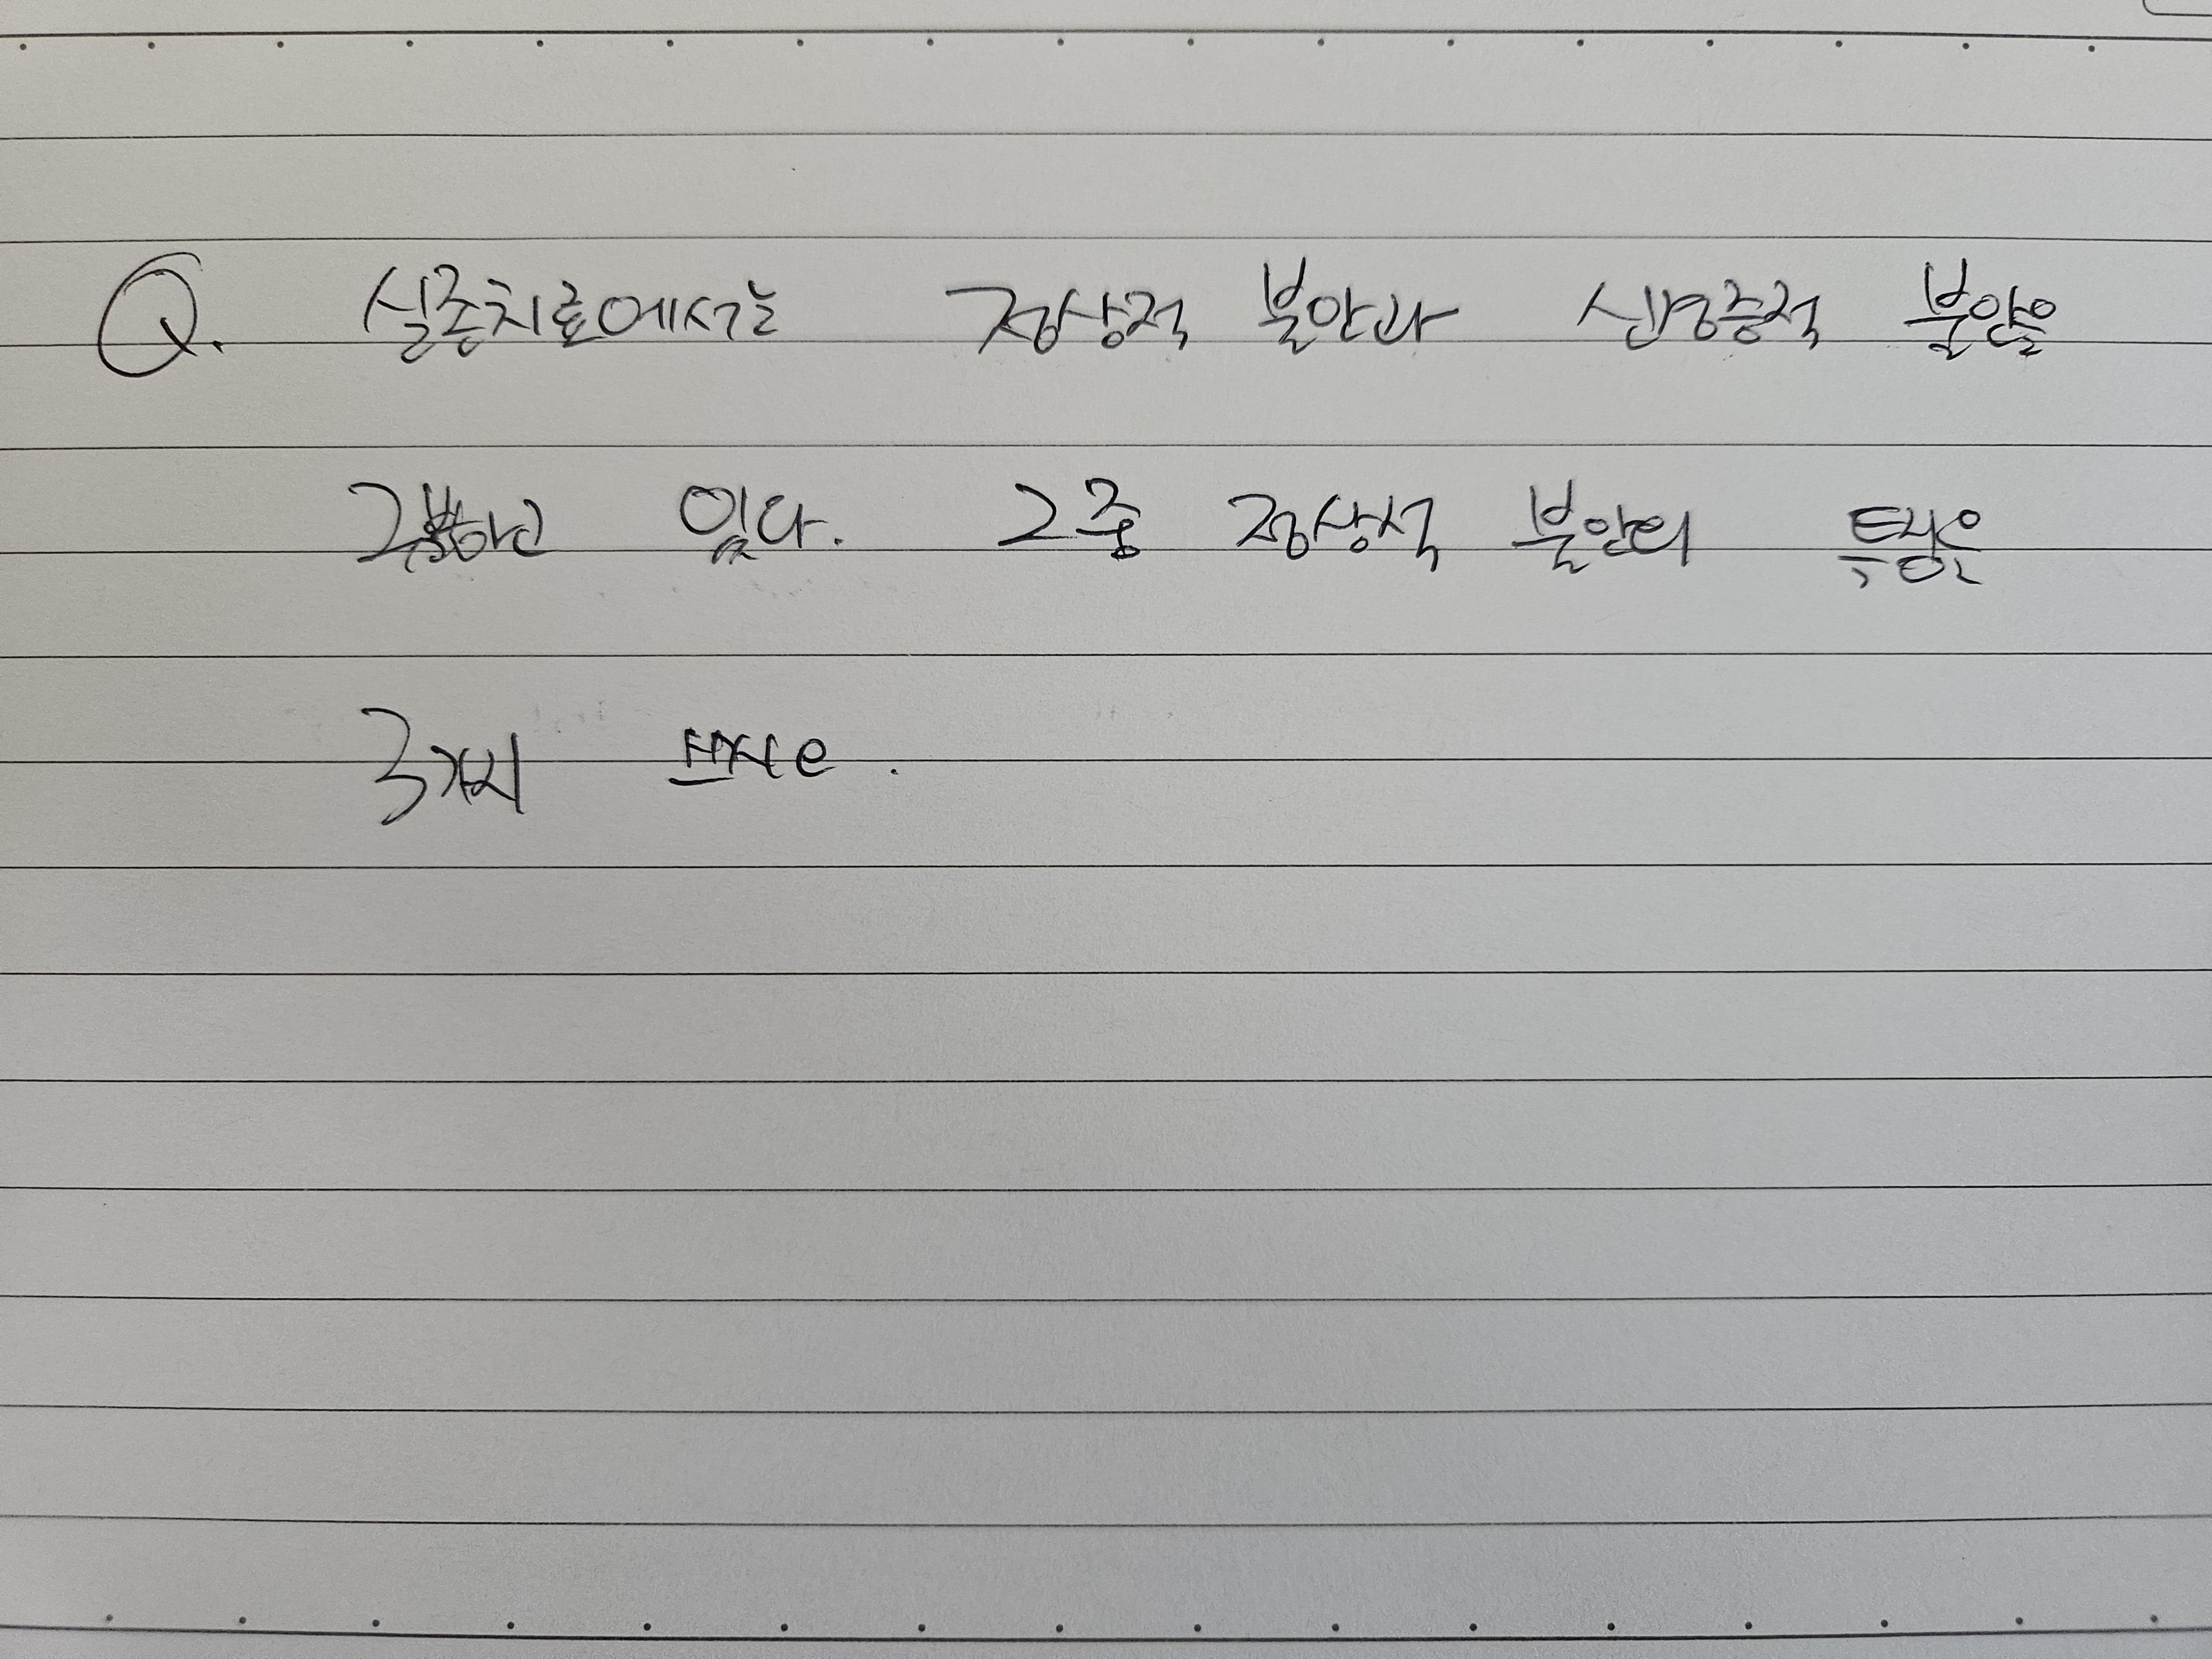 Q. 실존치료에서는 정상적 불안과 신경증적 불안을
구분하고 있다. 그중 정상적 불안의 특성은
3가지 쓰시오.